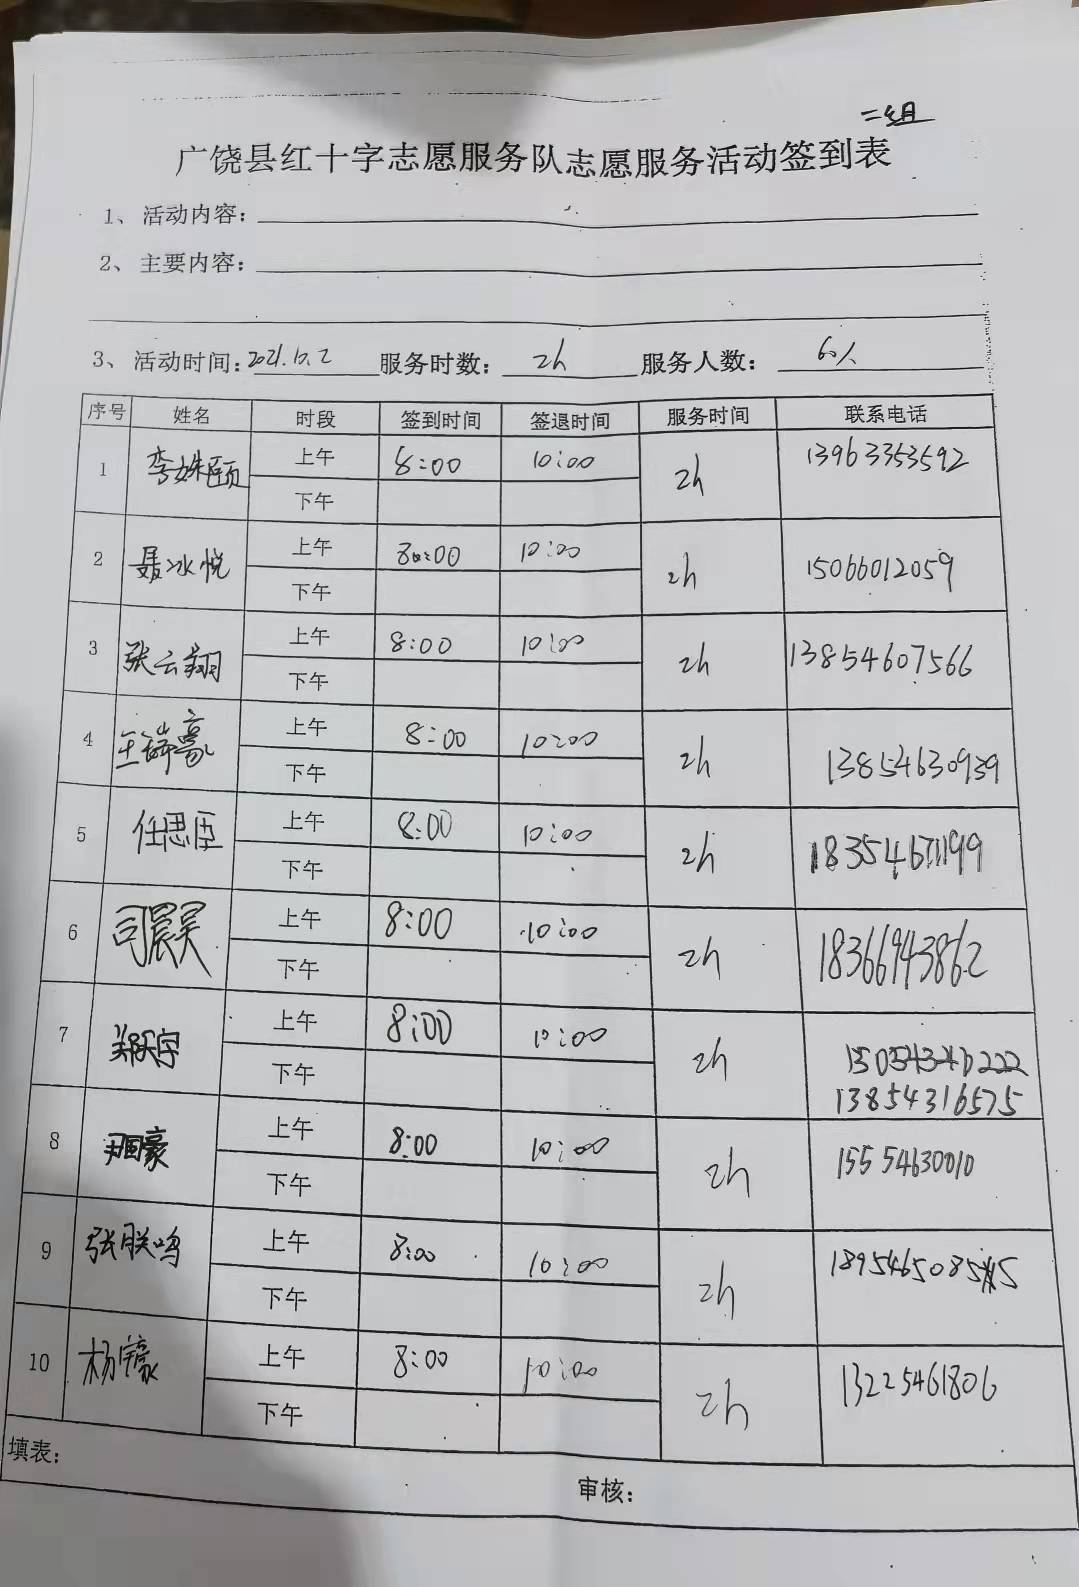 二组
广饶县红十字志愿服务队志愿服务活动签到表
1、活动内容：
2、主要内容：
3、活动时间：2021.10.2 服务时数：2h 服务人数：60人
序号 姓名 时段 签到时间 签退时间 服务时间 联系电话
1 李姝颐 上午 8:00 10:00 2h 13963353592
下午
2 聂冰悦 上午 8:00 10:00 2h 15066012059
下午
3 张云翔 上午 8:00 10:00 2h 13854607566
下午
4 上午 8:00 10:00 2h 13854630939
下午
5 任思臣 上午 8:00 10:00 2h
下午
6 司晨昊 上午 8:00 10:00 2h 18366943862
下午
7 郑天宇 上午 8:00 10:00 2h
下午 13854316575
8 尹国豪 上午 8:00 10:00 2h 15554630010
下午
9 上午 8:00 10:00 2h
下午
10 上午 8:00 10:00 2h 13225461806
下午
填表：
审核：